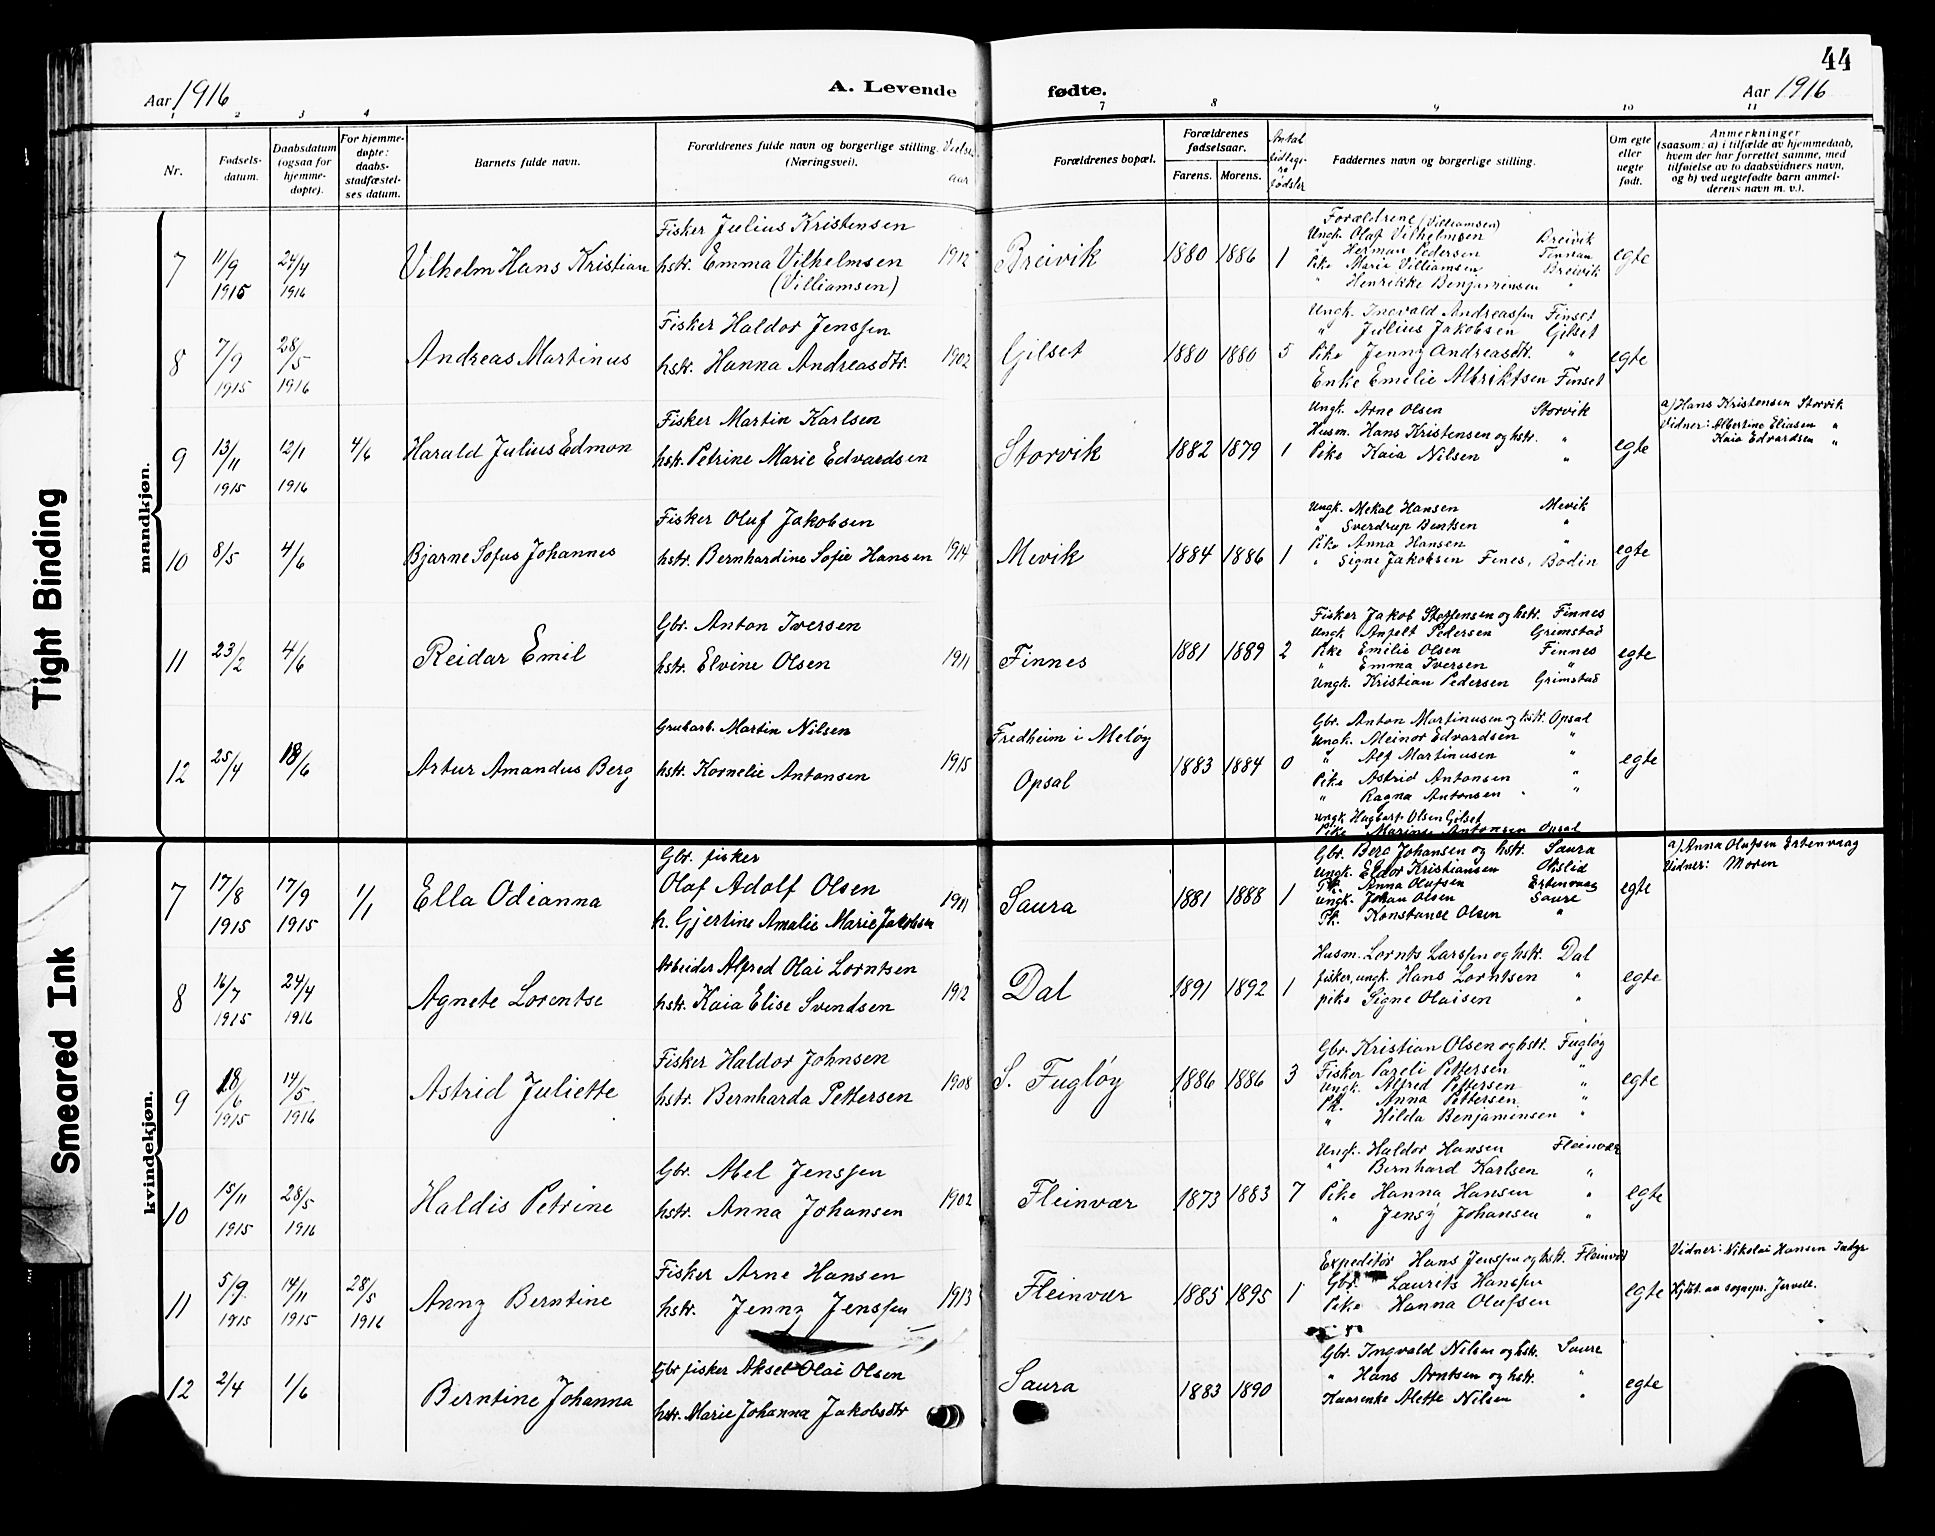 44
Aar 1916
A. Levende
fødte.
Aar 1916
1 2 3 4 7 8 9 10 11
Nr.
Fødsels-
datum.
Daabsdatum
(ogsaa for
hjemme-
døpte).
For hjemme-
døpte:
daabs-
stadfæstel-
ses datum.
Barnets fulde navn.
Forældrenes fulde navn og borgerlige stilling.
(Næringsvei).
Vielses
aar
Forældrenes bopæl.
Forældrenes
fødselsaar.
Farens. Morens.
Antal
tidlige-
re
fødsler
Faddernes navn og borgerlige stilling.
Om egte
eller
uegte
født.
Anmerkninger
(saasom: a) i tilfælde av hjemmedaab,
hvem der har forrettet samme, med
tilføielse av to daabsvidners navn,
og b) ved uegtefødte barn anmel-
derens navn m. v.).
mandkjøn.
7 11/9 1915 24/4 1916 Vilhelm Hans Kristian
Fisker Julius Kristensen
hstr. Emma Vilhelmsen
(Villiamsen)
1912 Breivik 1880 1886 1
Forældrene (Villiamsen)
Ungk. Olaf Vilhelmsen Breivik
" Herman Pedersen Finnan
Pike Marie Villiamsen Breivik
" Henrikke Benjaminsen "
egte
8 7/9 1915 28/5 1916 Andreas Martinus
Fisker Haldor Jenssen
hstr. Hanna Andreasdtr.
1902 Gilset 1880 1880 5
Ungk. Ingvald Andreassen Finset
" Julius Jakobsen Gilset
Pike Jenny Andreasdtr. "
Enke Emelie Albriktsen Finset
egte
9 13/11 1915 12/1 1916 4/6 Harald Julius Edmon
Fisker Martin Karlsen
hstr. Petrine Marie Edvardsen
Storvik 1882 1879 1
Ungk. Arne Olsen Storvik
Husm. Hans Kristensen og hstr. "
Pike Kaia Nilsen "
egte
a) Hans Kristensen Storvik
Vidner: Albertine Eliasen "
Kaia Edvardsen "
10 8/5 4/6 Bjarne Sofus Johannes
Fisker Oluf Jakobsen
hstr. Bernhardine Sofie Hansen
1914 Mevik 1884 1886 1
Ungk. Mekal Hansen Mevik
" Sverdrup Bentsen "
Pike Anna Hansen "
" Signe Jakobsen Fines, Bodin
egte
11 23/2 4/6 Reidar Emil
Gbr. Anton Iversen
hstr. Elvine Olsen
1911 Finnes 1881 1889 2
Fisker Jakob Steffensen og hstr. Finnes
Ungk. Anfelt Pedersen Grimstad
Pike Emilie Olsen Finnes
" Emma Iversen "
Ungk. Kristian Pedersen Grimstad
egte
12 25/4 18/6 Artur Amandus Berg
Grubarb. Martin Nilsen
hstr. Kornelie Antonsen
1915 Fredheim i Meløy
Opsal
1883 1884 0
Gbr. Anton Martinusen og hstr. Opsal
Ungk. Meinor Edvardsen "
" Alf Martinusen "
Pike Astrid Antonsen "
" Ragna Antonsen "
Ungk. Hagbart Olsen Gilset
Pike Marine Antonsen Opsal
egte
kvindekjøn.
7 17/8 1915 17/9 1915 1/1 Ella Odianna
Gbr. fisker
Olaf Adolf Olsen
h. Gjertine Amalie Marie Jakobsen
1911 Saura 1881 1888 1
Gbr. Berg Johansen og hstr. Saura
Ungk. Eldor Kristiansen Øislid
Pk. Anna Olufsen Ertenvaag
Ungk. Johan Olsen Saure
Pk. Konstance Olsen "
egte
a) Anna Olufsen Ertenvaag
Vidner: Moren
8 16/7 1915 24/4 1916 Agnete Lorentse
Arbeider Alfred Olai Lorntsen
hstr. Kaia Elise Svendsen
1912 Dal 1891 1892 1
Husm. Lornts Larssen og hstr. Dal
fisker, ungk. Hans Lorntsen "
pike Signe Olaisen "
egte
9 18/6 1915 14/5 1916 Astrid Juliette
Fisker Haldor Johnsen
hstr. Bernharda Pettersen
1908 S. Fugløy 1886 1886 3
Gbr. Kristian Olsen og hstr. Fugløy
Fisker Pareli Pettersen "
Ungk. Alfred Pettersen "
Pk. Anna Pettersen "
" Hilda Benjaminsen "
egte
10 15/11 1915 28/5 1916 Haldis Petrine
Gbr. Abel Jenssen
hstr. Anna Johansen
1902 Fleinvær 1873 1883 7
Ungk. Haldor Hansen Fleinvær
" Bernhard Karlsen "
Pike Hanna Hansen "
" Jensy Johansen "
egte
11 5/9 1915 14/11 1915 28/5 1916 Anny Berntine
Fisker Arne Hansen
hstr. Jenny Jenssen
1913 Fleinvær 1885 1895 1
Expeditør Hans Jenssen og hstr. Fleinvær
Gbr. Laurits Hanssen
Pike Hanna Olufsen
egte
Vidner: Nikolai Hansen Indyr
Hjdøt. av sognepr. Jervell.
12 2/4 1/6 Berntine Johanna
Gbr fisker Aksel Olai Olsen
hstr. Marie Johanna Jakobsdtr
Saura 1883 1890
Gbr. Ingvald Nilsen og hstr. Saure
" Hans Arntsen og hstr. "
Kaarenke Alette Nilsen "
egte
Tight Binding
Smeared Ink